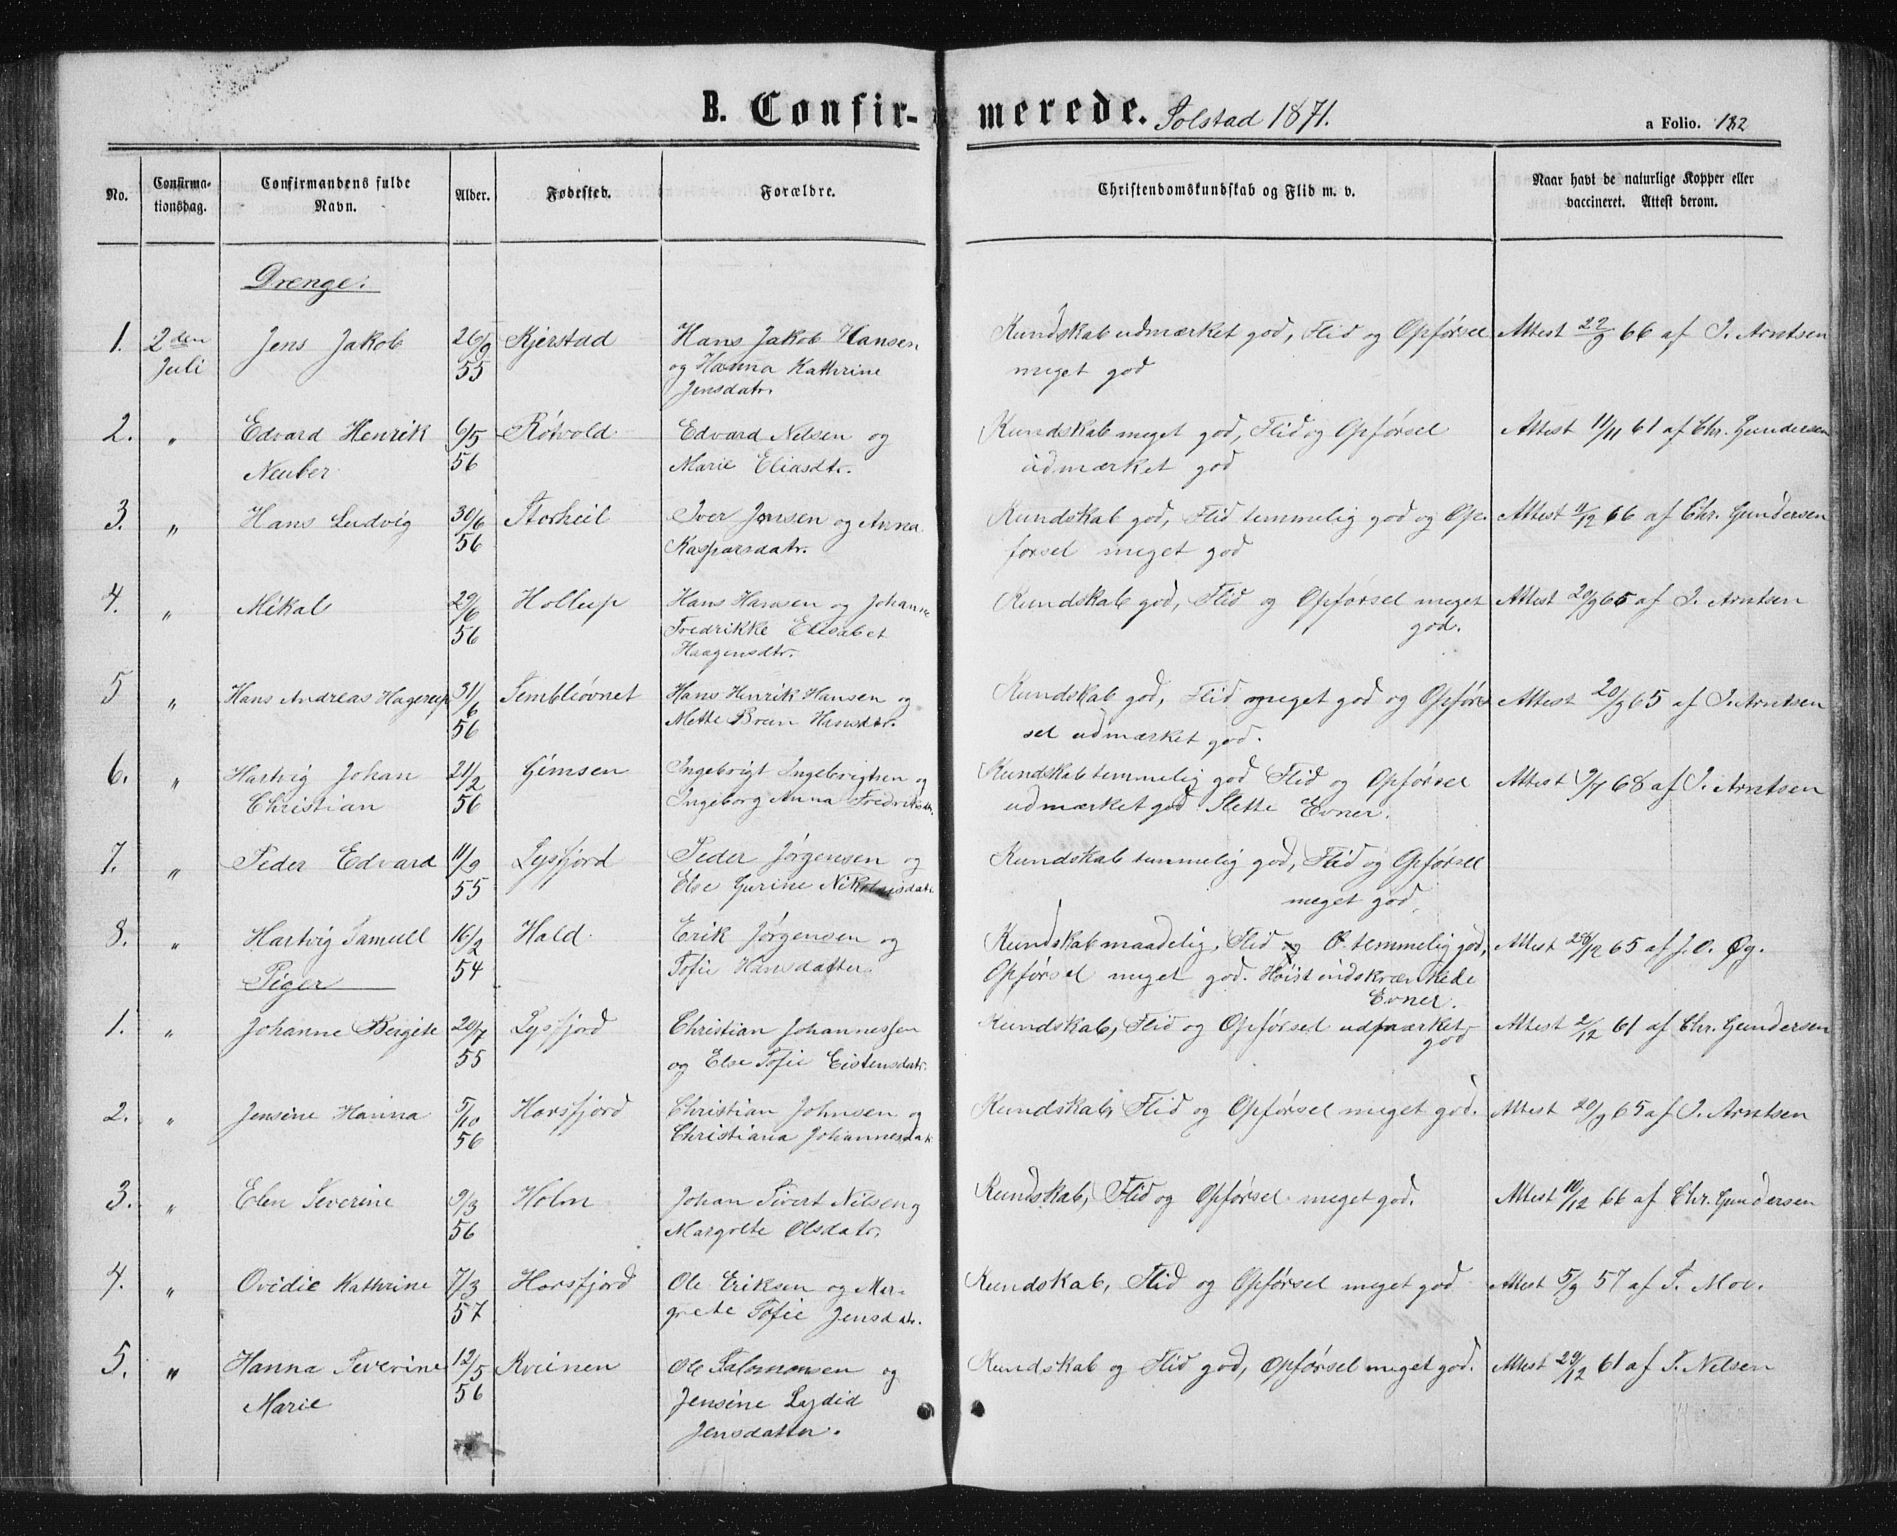 B. Confirmerede. Solstad 1871.
a Folio. 182
No.
Confirmationsdag.
Confirmandens fulde Navn.
Alder.
Fødested.
Forældre.
Christendomskundskab og Flid m. v.
Naar havt de naturlige Kopper eller vaccineret. Attest derom.
Drenge:
1. 2den Jens Jakob 26/9 Kjerstad Hans Jakob Hansen Kundskab udmærket god, Flid og Opførsel Attest 22/9 66 af I. Arntsen
Juli 55 og Hanna Kathrine meget god
Jensdatr.
2. " Edvard Henrik 6/5 Røtvold Edvard Nilsen og Kundskab meget god, Flid og Opførsel Attest 11/11 61 af Chr. Gundersen
Neuber 56 Marie Eliasdtr. udmærket god
3. " Hans Ludvig 30/6 Storheil Iver Jensen og Anna Kundskab god, Flid temmelig god og Op- Attest /12 66 af Chr. Gundersen
56 Kaspersdatr. førsel meget god
4. " Mikal 29/6 Hollup Hans Hansen og Johanne Kundskab god, Flid og Opførsel meget Attest 20/9 65 af I. Arntsen
56 Fredrikke Elisabet god.
Haagensdtr.
5 " Hans Andreas Hagerup 31/6 Hans Henrik Hansen og Kundskab god, Flid meget god og Opfør Attest 20/9 65 af I. Arntsen
56 Mette Brun Hansdtr. sel udmærket god.
6. " Hartvig Johan 21/2 Gimsen Ingebrigt Ingebrigtsen og Kundskab temmelig god Flid og Opførsel Attest 9/7 68 af I. Arntsen
Christian 56 Ingeborg Anna udmærket god Slette Evner.
7. " Peder Edvard 11/9 Lysfjord Peder Jørgensen og Kundskab temmelig god, Flid og Opførsel
55 Else Gurine Nikolaisdatr. meget god
8. " Hartvig Samuel 16/2 Hald. Erik Jørgensen og Kundskab maadelig, Flid temmelig god, Attest 28/12 65 af J. O. Øy.
Piger 54 Sofie Hansdatter Opførsel meget god. Høist indskrænkede
Evner.
1. " Johanne Bergite 20/7 Lysfjord Christian Johannessen Kundskab, Flid og Opførsel udmærket Attest 2/12 61 af Chr. Gundersen
55 og Else Sofie Eistensdatr. god
2. " Jensine Hanna 5/10 Horsfjord Christian Johnsen og Kundskab, Flid og Opførsel meget god. Attest 20/9 65 af I. Arntsen
56 Christiana Johannesdatr
3. " Elen Severine 9/3 Holm Johan Sivert Nilsen og Kundskab, Flid og Opførsel meget god. Attest 10/12 66 af Chr. Gundersen
56 Margrete Olsdatr.
4. " Ovidie Kathrine 7/3 Horsfjord Ole Eriksen og Mar- Kundskab, Flid og Opførsel meget god Attest 5/9 57 af S. Moe.
57 grete Sofie Jensdatr.
5. " Hanna Severine 12/5 Kveinen Ole Salomonsen og Kundskab og Flid god, Opførsel meget god. Attest 29/12 61 af S. Nilsen
Marie 56 Jensine Lydid
Jensdatter.